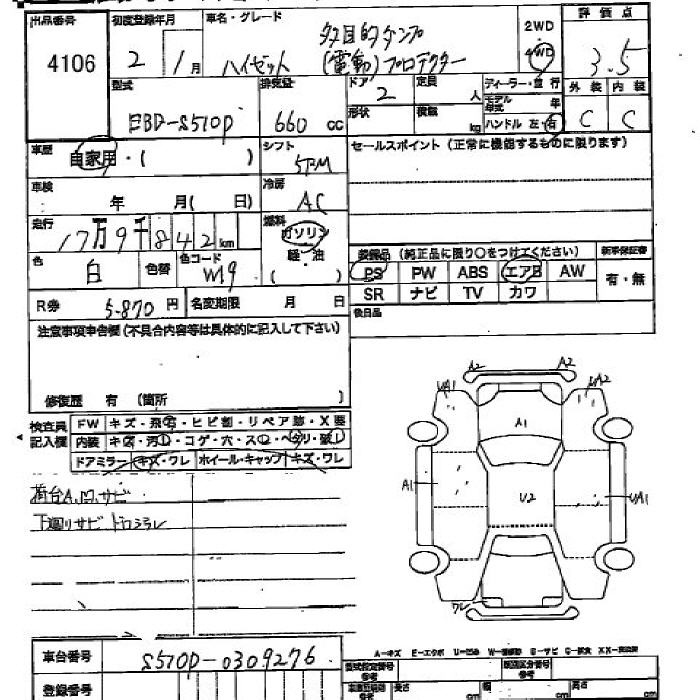 出品番号 初度登録年月 車名・グレード 2WD 評価点
4106 2 1月 ハイゼット 多目的ダンプ (電動)プロテクター 4WD 3.5
型式 排気量 ドア 定員 ディーラー・並行 外装 内装
EBD-S510P 660 cc 2 人 モデル年式 年 C C
形状 積載 kg ハンドル 左・右
車歴 自家用・( ) シフト 5FM セールスポイント(正常に機能するものに限ります)
車検 年 月( 日) 冷房 AC
走行 17万9千842km 燃料 ガソリン
軽・油
( )
色 白 色替 色コード W19
装備品 (純正品に限り○をつけてください) 新車保証書
PS PW ABS エアB AW 有・無
SR ナビ TV カワ
R券 5.870円 名変期限 月 日 後日品
注意事項申告欄(不具合内容等は具体的に記入して下さい)
修復歴 有 (箇所 )
検査員記入欄 FW キズ・飛石・ヒビ割・リペア跡・X要
内装 キズ・汚れ・コゲ・穴・スレ・ヘタリ・破れ
ドアミラー キズ・ワレ ホイール・キャップ キズ・ワレ
荷台A.U.サビ
下廻りサビ ドロヨゴレ
A2 A2
UA1 UA2
A1
A1 U2 UA1
ワレ
A-キズ E-エクボ U-凹み
車台番号 S510P-0309276
型式指定番号 参考 類別区分番号 参考
登録番号 長さ cm 幅 cm 高さ cm